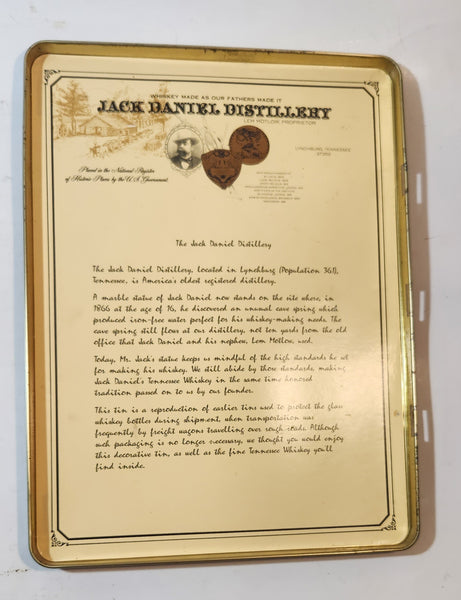 WHISKEY MADE AS OUR FATHERS MADE IT
JACK DANIEL DISTILLERY
LEM MOTLOW, PROPRIETOR
LYNCHBURG, TENNESSEE
37352
Placed in the National Register
of Historic Places by the U.S. Government.
The Jack Daniel Distillery
The Jack Daniel Distillery, located in Lynchburg (Population 361),
Tennessee, is America's oldest registered distillery.
A marble statue of Jack Daniel now stands on the site where, in
1866 at the age of 16, he discovered an unusual cave spring which
produced iron-free water perfect for his whiskey-making needs. The
cave spring still flows at our distillery, not ten yards from the old
office that Jack Daniel and his nephew, Lem Motlow, used.
Today, Mr. Jack's statue keeps us mindful of the high standards he set
for making his whiskey. We still abide by those standards, making
Jack Daniel's Tennessee Whiskey in the same time honored
tradition passed on to us by our founder.
This tin is a reproduction of earlier tins used to protect the glass
whiskey bottles during shipment, when transportation was
frequently by freight wagons travelling over rough roads. Although
such packaging is no longer necessary, we thought you would enjoy
this decorative tin, as well as the fine Tennessee Whiskey you'll
find inside.